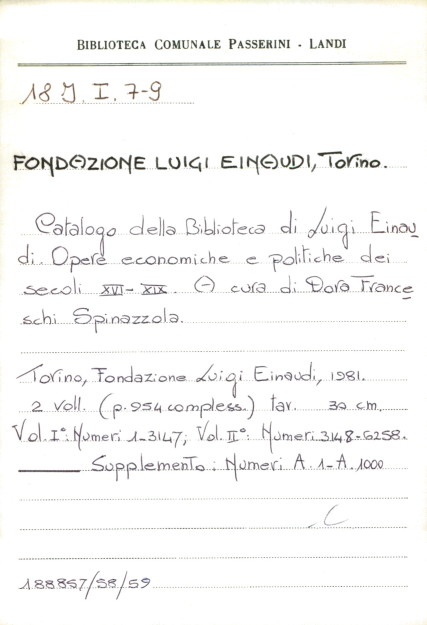 BIBLIOTECA COMUNALE PASSERINI - LANDI
18 J. I. 7-9
FONDAZIONE LUIGI EINAUDI, Torino.
Catalogo della Biblioteca di Luigi Einau
di. Opere economiche e politiche dei
secoli XVI-XIX. A cura di Dora France
schi Spinazzola.
Torino, Fondazione Luigi Einaudi, 1981.
2 voll. (p. 954 compless.) tav. 30 cm.
Vol. I°: Numeri 1-3147; Vol. II°: Numeri 3148-6258.
Supplemento: Numeri A. 1-A. 1000
C
188857/58/59